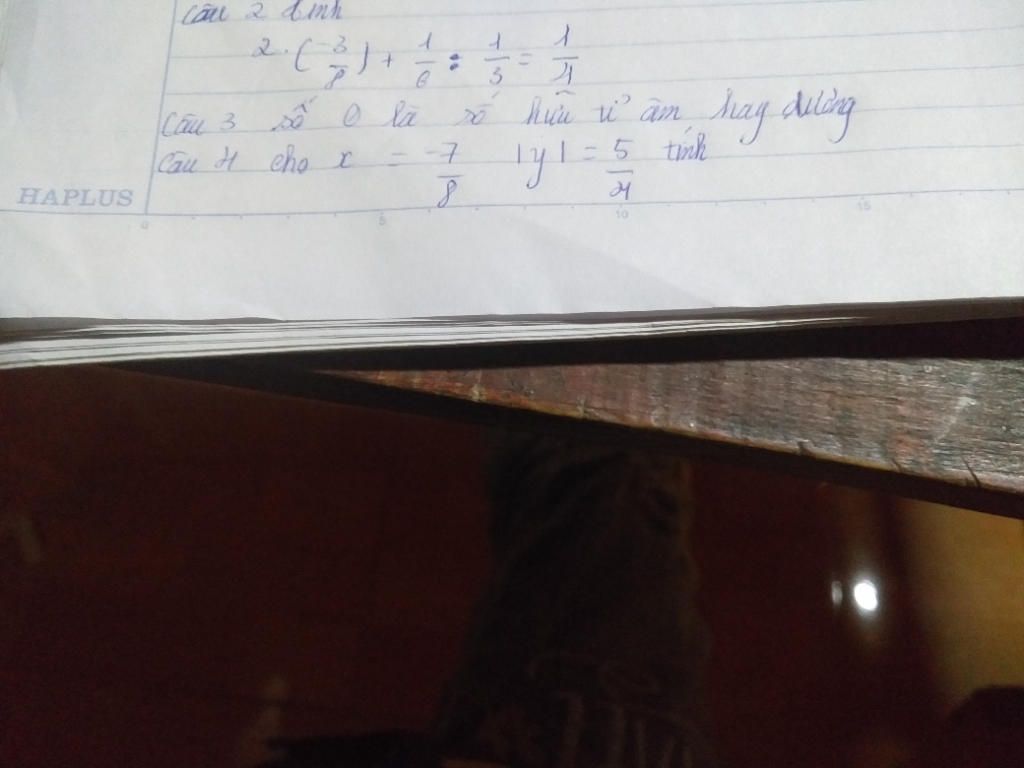 Câu 2 tính
2. (-3/8) + 1/6 : 1/3 = 1/4
Câu 3 số 0 là số hữu tỉ âm hay dương
Câu 4 cho x = -7/8 |y| = 5/4 tính
HAPLUS
0 5 10 15